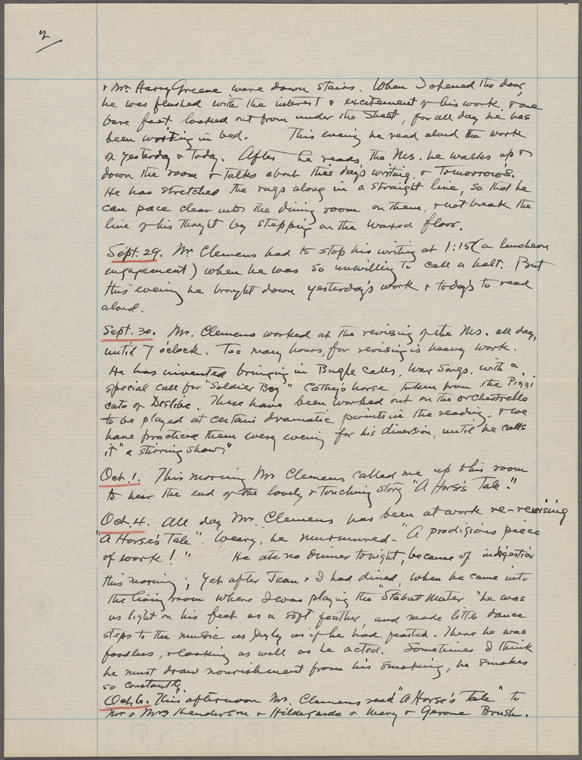 2
& Mr. Harry Greene were down stairs. When I opened the door,
he was flushed with the interest & excitement of his work, & one
bare foot looked out from under the sheet, for all day he has
been working in bed. This evening he read aloud the work
of yesterday & today. After he reads the Ms. he walks up &
down the room & talks about this day's writing, & tomorrow's.
He has stretched the rugs along in a straight line, so that he
can pace clear into the dining room on them, & not break the
line of his thought by stepping on the waxed floor.
Sept. 29. Mr. Clemens had to stop his writing at 1:15 (a luncheon
engagement) when he was so unwilling to call a halt. But
this evening he brought down yesterday's work & today's to read
aloud.
Sept. 30. Mr. Clemens worked at the revising of the Ms. all day,
until 7 o'clock. Too many hours, for revising is heavy work.
He has invented bringing in Bugle calls, War songs, with a
special call for "Soldier Boy" Cathy's horse, taken from the Pizzi
cato of Delibe. These have been worked out on the orchestrelle
to be played at certain dramatic points in the reading, & we
have practiced them every evening for his diversion, until he calls
it "a stirring show."
Oct. 1. This morning Mr. Clemens called me up to his room
to hear the end of the lovely & touching story "A Horse's Tale."
Oct. 4. All day Mr. Clemens has been at work re-revising
"A Horse's Tale". Weary, he murmured - "A prodigious piece
of work!" He ate no dinner tonight, because of indigestion
this morning; Yet after Jean & I had dined, when he came into
the living room where I was playing the "Stabat Mater" he was
as light on his feet as a soft feather, and made little dance
steps to the music as as if he had feasted. There he was
foodless, & looking as well as he acted. Sometimes I think
he must draw nourishment from his smoking, he smokes
so constantly.
Oct. 6. This afternoon Mr. Clemens read "A Horse's Tale" to
Mr & Mrs Henderson & Hildegarde & Mary & Gerome Brush.